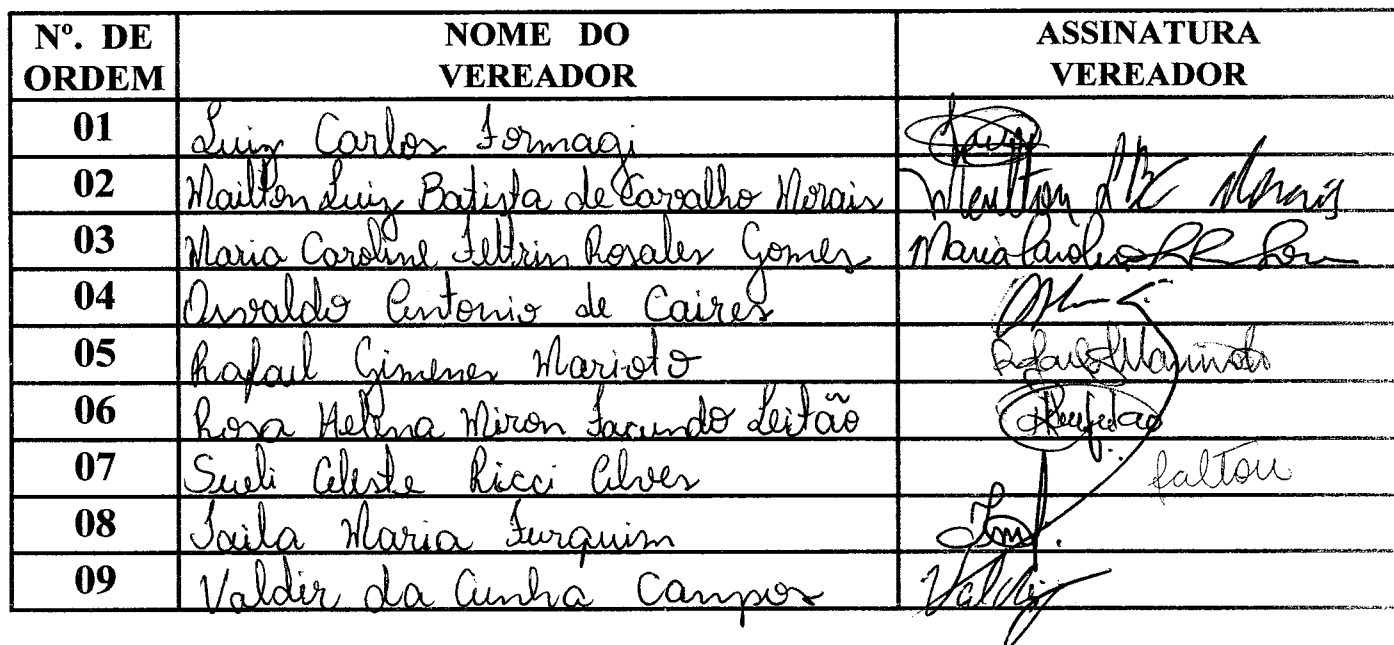 Nº. DE ORDEM NOME DO VEREADOR ASSINATURA VEREADOR
01 Luiz Carlos Formagi
02 Mailton Luiz Batista de Carvalho Morais
03 Maria Caroline Feltrin Rosales Gomes Maria
04 Osvaldo Antonio de Caires
05 Rafael Gimenes Marioto
06 Rosa Helena Miron Facundo Leitão
07 Sueli Celeste Ricci Alves faltou
08 Taila Maria Furquim
09 Valdir da Cunha Campos Valdir